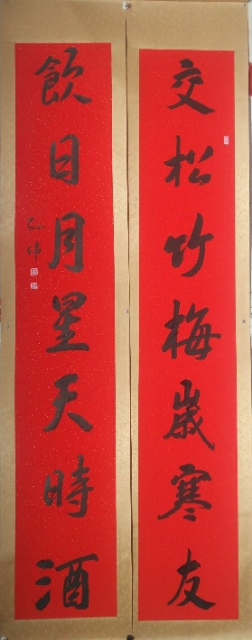 交松竹梅歲寒友
飲日月星天時酒